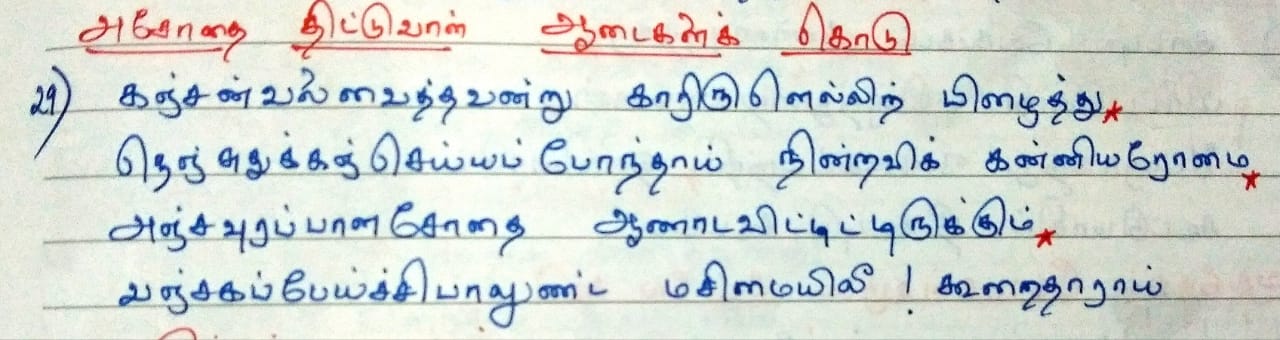 அசோதை திட்டுவாள் ஆடைகளைக் கொடு
29) கஞ்சன்வலைவைத்தவன்று காரிருளெல்லிற் பிழைத்து*
நெஞ்சுதுக்கஞ்செய்யப்போந்தாய் நின்றவிக் கன்னியரோமை*
அஞ்சவுரப்பாளசோதை ஆணாடவிட்டிட்டிருக்கும்*
வஞ்சகப்பேய்ச்சிபாலுண்ட மசிமையிலீ! கூறைதாராய்